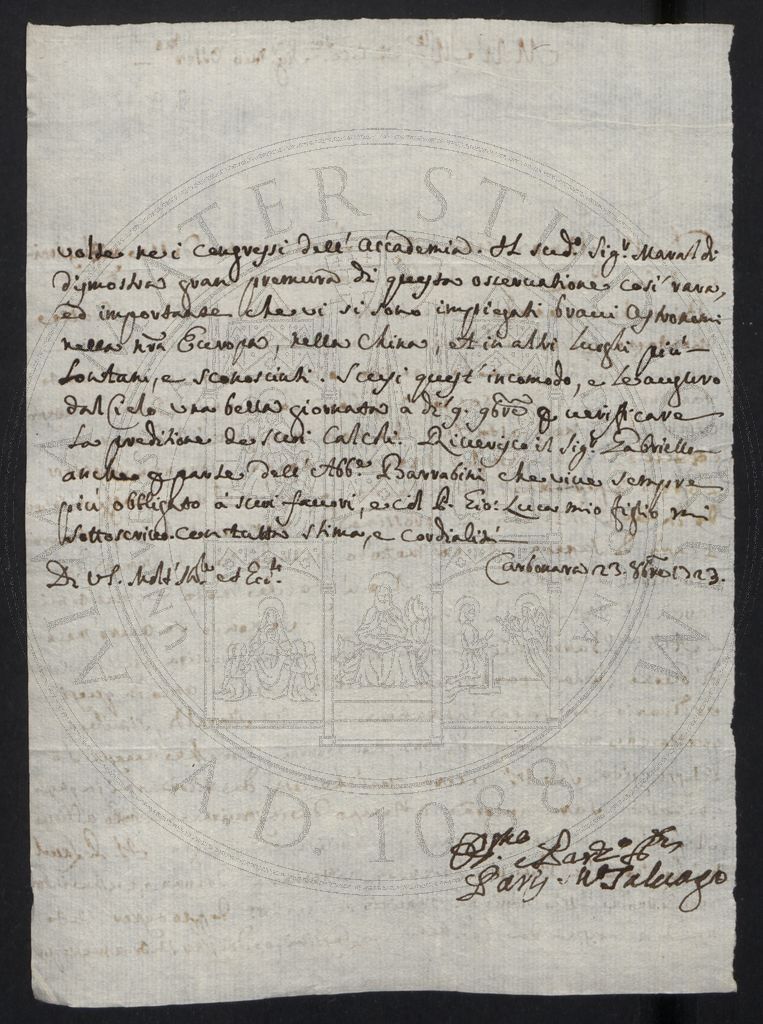 volte ne i Congressi dell' Accademia. Il sud.º Sig.r Maraldi
dimostra gran premura di questa osservatione così rara,
ed importante che vi si sono impiegati bravi Astronomi
nella nr̃a Europa, nella China, et in altri luoghi più
lontani, e sconosciuti. Scusi quest' incomodo, e le auguro
dal Cielo una bella giornata a dì 9. 9bre p verificare
la preditione de suoi Calcoli. Riverisco il Sig.r Gabriello
anche p parte dell' Abb.e Barrabini che vive sempre
più obbligato à suoi favori, e col P. Gio: Luca mio figlio mi
sottoscrivo con tutta stima, e cordialità
Di VS. Molt' Ill.e et Ecc.te
Carbonara 23. 8bre 1723.
Paris M.a Salvago
ALMA MATER STUDIORUM
A.D. 1088